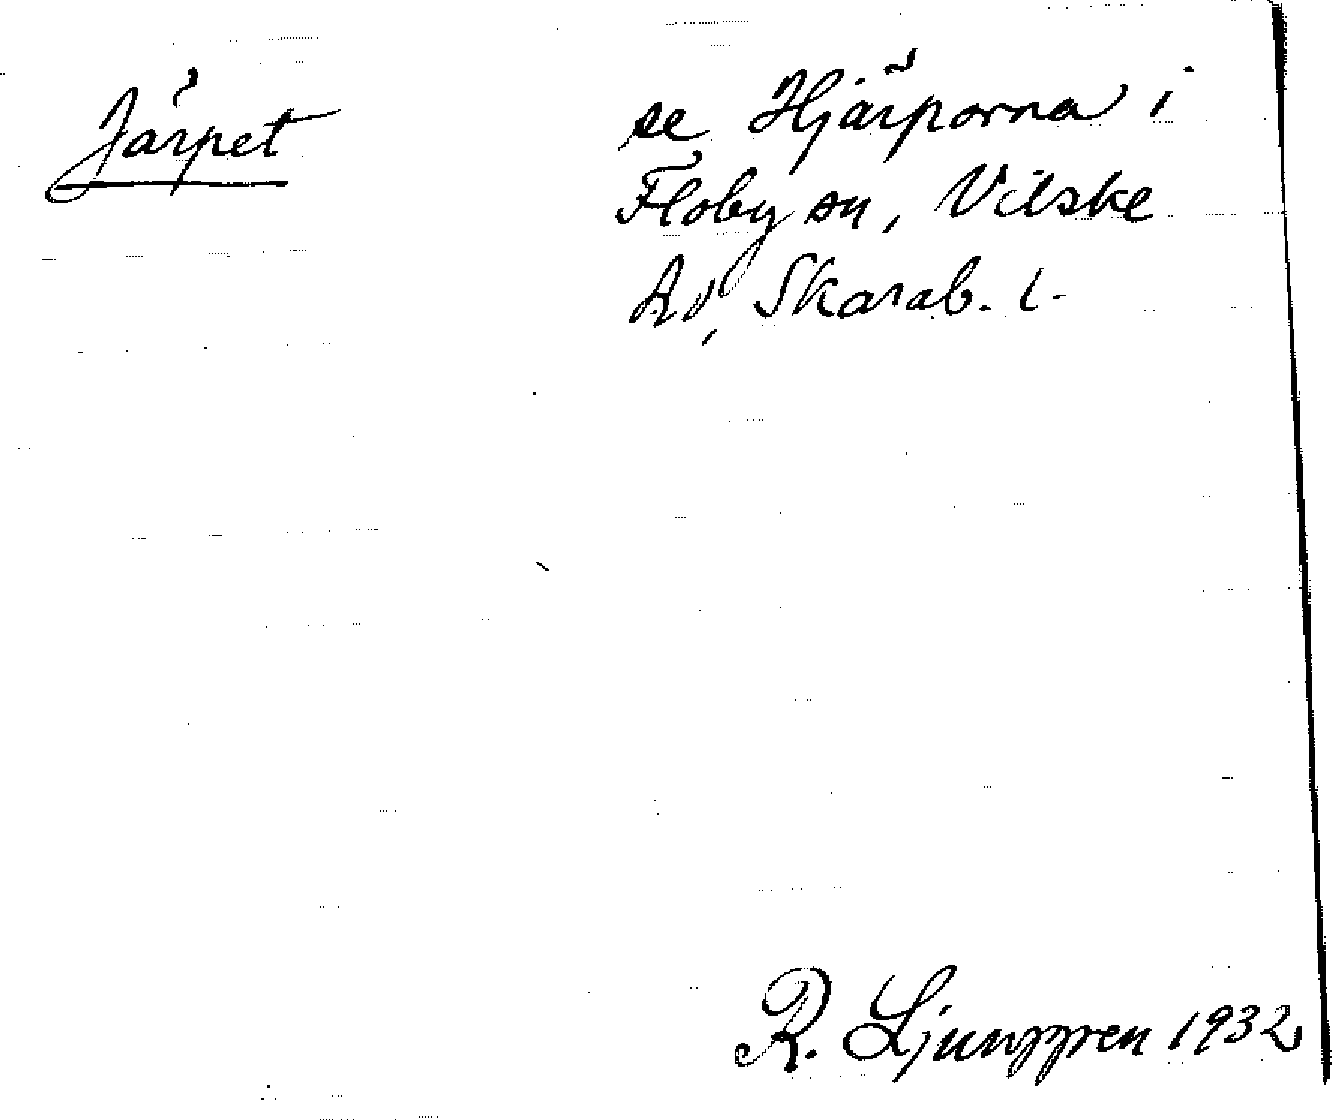 Järpet
se Hjärporna i
Floby sn, Vilske
hd, Skarab. l.
R. Ljunggren 1932